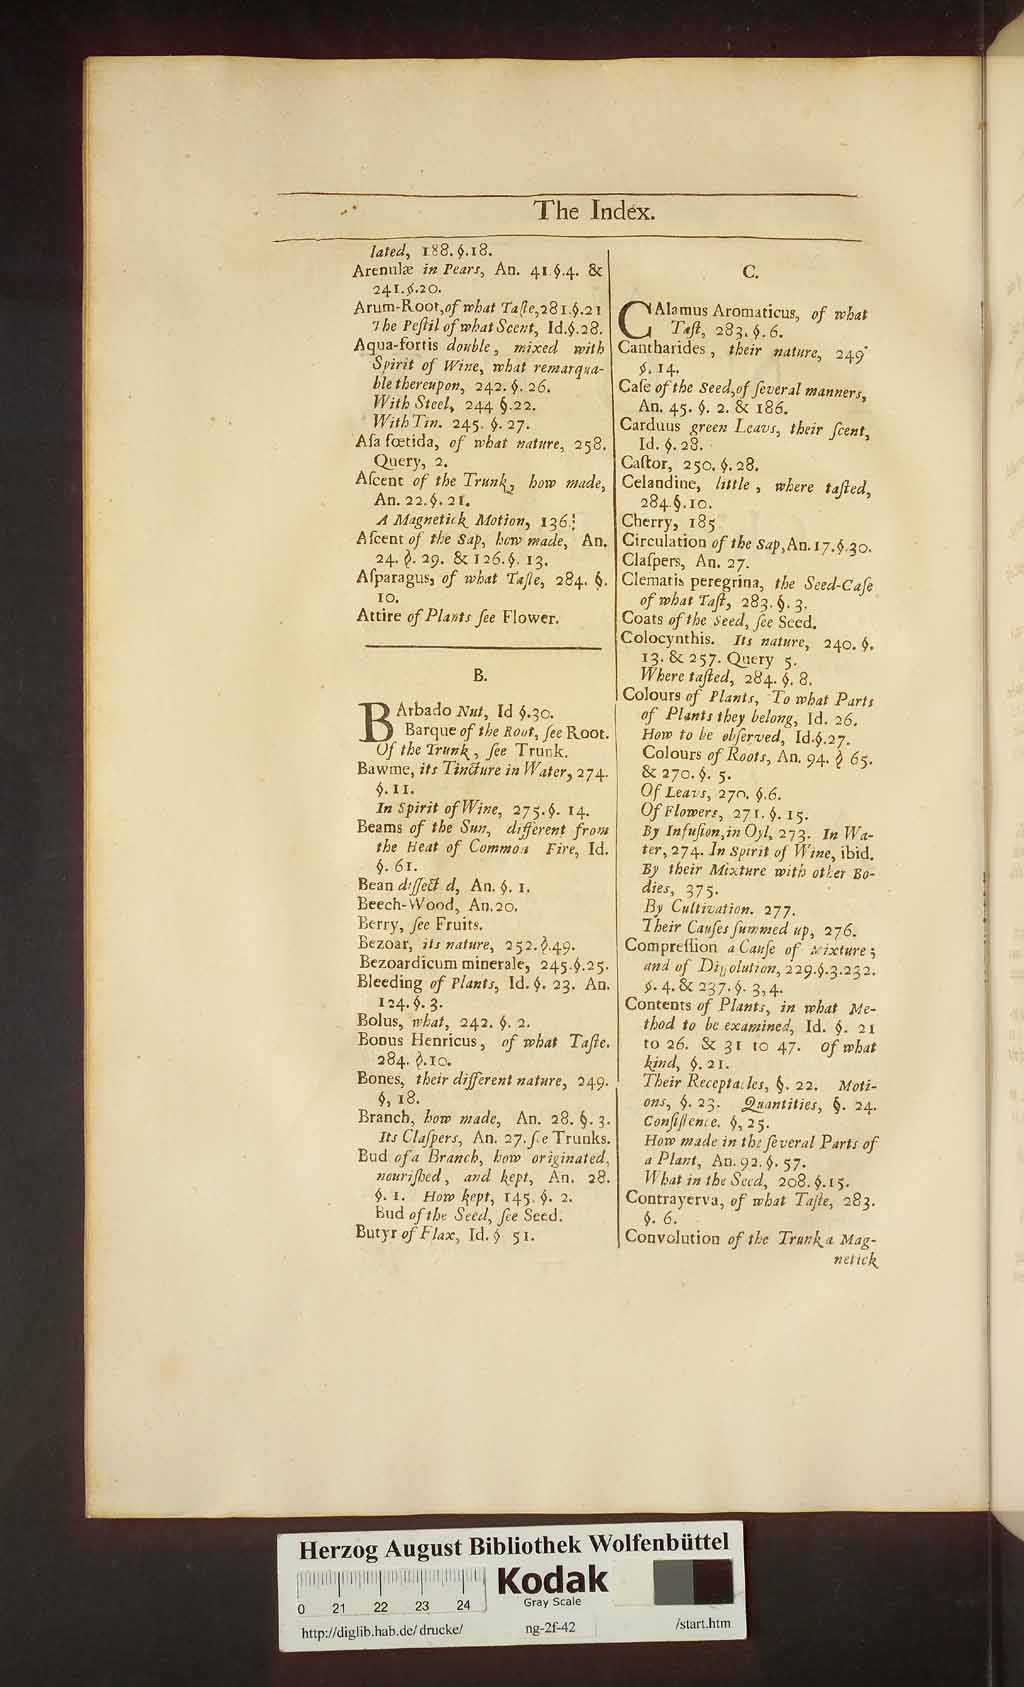 The Index.
lated, 188. §. 18.
Arenulæ in Pears, An. 41 §.4. &
241. §.20.
Arum-Root, of what Taſte, 281. §.21
The Peſtil of what Scent, Id. §.28.
Aqua-fortis double, mixed with
Spirit of Wine, what remarqua-
ble thereupon, 242. §. 26.
With Steel, 244 §.22.
With Tin. 245. §. 27.
Aſa fœtida, of what nature, 258.
Query, 2.
Aſcent of the Trunk, how made,
An. 22. §. 21.
A Magnetick Motion, 136.
Aſcent of the Sap, how made, An.
24. §. 29. & 126. §. 13.
Aſparagus, of what Taſte, 284. §.
10.
Attire of Plants ſee Flower.
B.
BArbado Nut, Id §.30.
Barque of the Root, ſee Root.
Of the Trunk, ſee Trunk.
Bawme, its Tincture in Water, 274.
§. 11.
In Spirit of Wine, 275. §. 14.
Beams of the Sun, different from
the Heat of Common Fire, Id.
§. 61.
Bean diſſect d, An. §. 1.
Beech-Wood, An. 20.
Berry, ſee Fruits.
Bezoar, its nature, 252. §.49.
Bezoardicum minerale, 245. §.25.
Bleeding of Plants, Id. §. 23. An.
124. §. 3.
Bolus, what, 242. §. 2.
Bonus Henricus, of what Taſte.
284. §.10.
Bones, their different nature, 249.
§, 18.
Branch, how made, An. 28. §. 3.
Its Claſpers, An. 27. ſee Trunks.
Bud of a Branch, how originated,
nouriſhed, and kept, An. 28.
§. 1. How kept, 145. §. 2.
Bud of the Seed, ſee Seed.
Butyr of Flax, Id. § 51.
C.
CAlamus Aromaticus, of what
Taſt, 283. §. 6.
Cantharides, their nature, 249
§. 14.
Caſe of the Seed, of ſeveral manners,
An. 45. §. 2. & 186.
Carduus green Leavs, their ſcent,
Id. §. 28.
Caſtor, 250. §. 28.
Celandine, little, where taſted,
284. §.10.
Cherry, 185
Circulation of the Sap, An. 17. §.30.
Claſpers, An. 27.
Clematis peregrina, the Seed-Caſe
of what Taſt, 283. §. 3.
Coats of the Seed, ſee Seed.
Colocynthis. Its nature, 240. §.
13. & 257. Query 5.
Where taſted, 284. §. 8.
Colours of Plants, To what Parts
of Plants they belong, Id. 26.
How to be obſerved, Id. §.27.
Colours of Roots, An. 94. § 65.
& 270. §. 5.
Of Leavs, 270. §.6.
Of Flowers, 271. §. 15.
By Infuſion, in Oyl, 273. In Wa-
ter, 274. In Spirit of Wine, ibid.
By their Mixture with other Bo-
dies, 375.
By Cultivation. 277.
Their Cauſes ſummed up, 276.
Compreſſion a Cauſe of Mixture;
and of Diſſolution, 229. §.3.232.
§. 4. & 237. §. 3, 4.
Contents of Plants, in what Me-
thod to be examined, Id. §. 21
to 26. & 31 to 47. Of what
kind, §. 21.
Their Receptacles, §. 22. Moti-
ons, §. 23. Quantities, §. 24.
Conſiſtence. §, 25.
How made in the ſeveral Parts of
a Plant, An. 92. §. 57.
What in the Seed, 208. §.15.
Contrayerva, of what Taſte, 283.
§. 6.
Convolution of the Trunk a Mag-
netick
Herzog August Bibliothek Wolfenbüttel
Kodak
Gray Scale
0 21 22 23 24
http://diglib.hab.de/drucke/ ng-2f-42 /start.htm